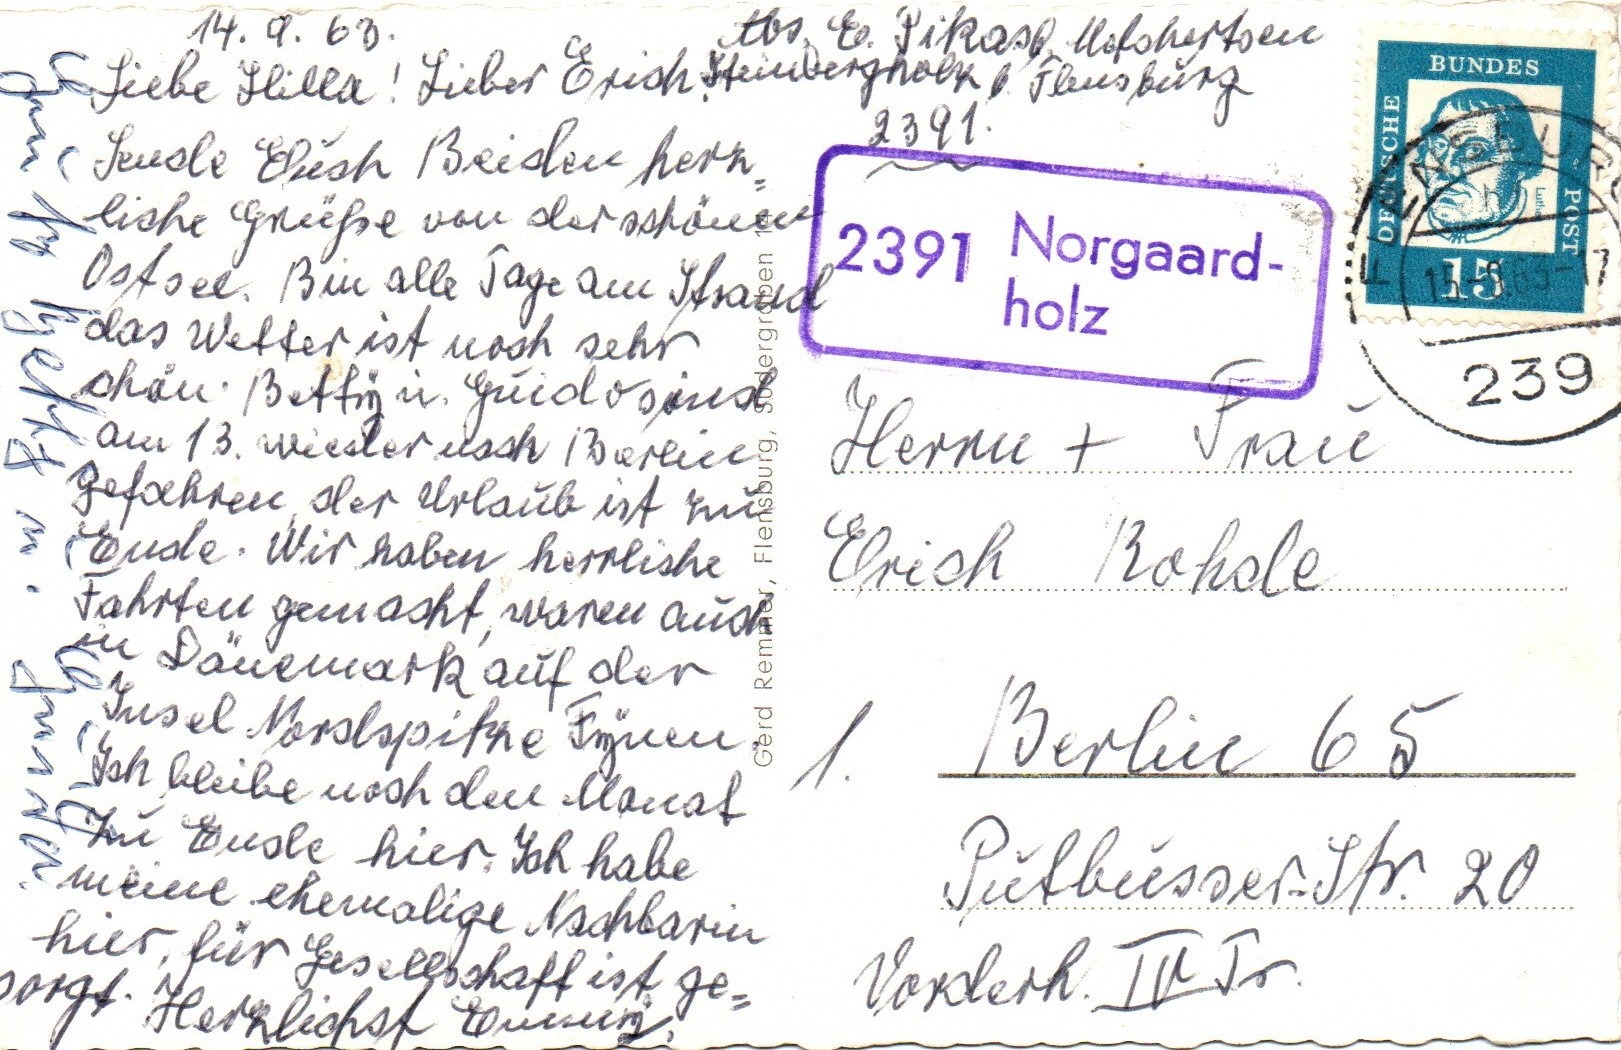 14. 9. 63.
Liebe Hilla! Lieber Erich!
Sende Euch Beiden herz=
liche Grüße von der schönen
Ostsee. Bin alle Tage am Strand
das Wetter ist noch sehr
schön. Betty u. Guido sind
am 13. wieder nach Berlin
gefahren, der Urlaub ist zu
Ende. Wir haben herrliche
Fahrten gemacht, waren auch
in Dänemark auf der
Insel Nordspitze Fynen
Ich bleibe noch den Monat
zu Ende hier. Ich habe
meine ehemalige Nachbarin
hier, für Gesellschaft ist ge=
sorgt. Herzlichst Emmy.
Abs. E. Pikass
Steinbergholz b. Flensburg
2391.
2391 Norgaard-
holz
DEUTSCHE
BUNDES
POST
15
FLENSBURG
239
Gerd Remmer, Flensburg, Südergraben
Herrn + Frau
Erich Rohde
1. Berlin 65
Putbusser-Str. 20
Vorderh. IV Tr.